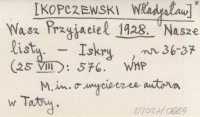 [KOPCZEWSKI Władysław]*
Wasz Przyjaciel 1928. Nasze
listy. – Iskry, nr 36-37
(25 VIII): 576. WHP
M. in. o wycieczce autora
w Tatry.